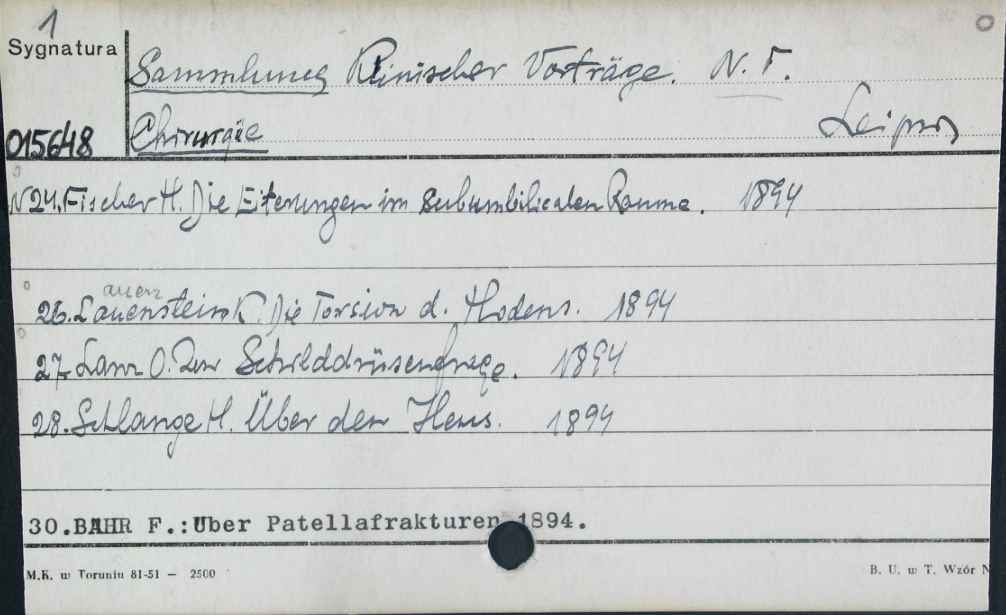 1
Sygnatura
Sammlung Klinischer Vorträge. N. F.
Chirurgie Leipzig
015648
N 24. Fischer H. Die Eiterungen im subumbilicalen Raume. 1894
auen
26. Lauenstein K. Die Torsion d. Hodens. 1894
27. Lanz O. Zur Schilddrüsenfrage. 1894
28. Schlange H. Über den Ileus. 1894
30.BAHR F.:Uber Patellafrakturen 1894.
M.K. w Toruniu 81-51 — 2500 B. U. w T. Wzór N